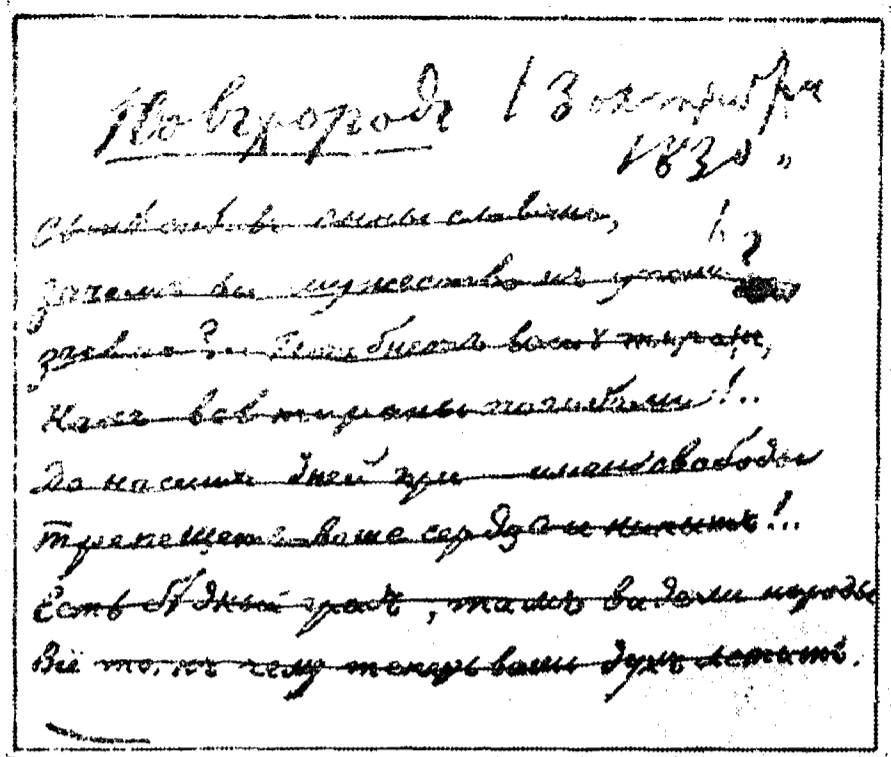 Новгородъ 13 октября
1830 „
Сыны снѣговъ сыны славянъ,
Зачемъ вы мужествомъ упали?
Зачемъ?.. Погибнетъ вашъ тиранъ,
Какъ всѣ тираны погибали!..
До нашихъ дней при имени свободы
Трепещетъ ваше сердце и кипитъ!..
Есть бѣдный градъ, тамъ видели народы
Всё то, къ чему теперь вашъ духъ летитъ.